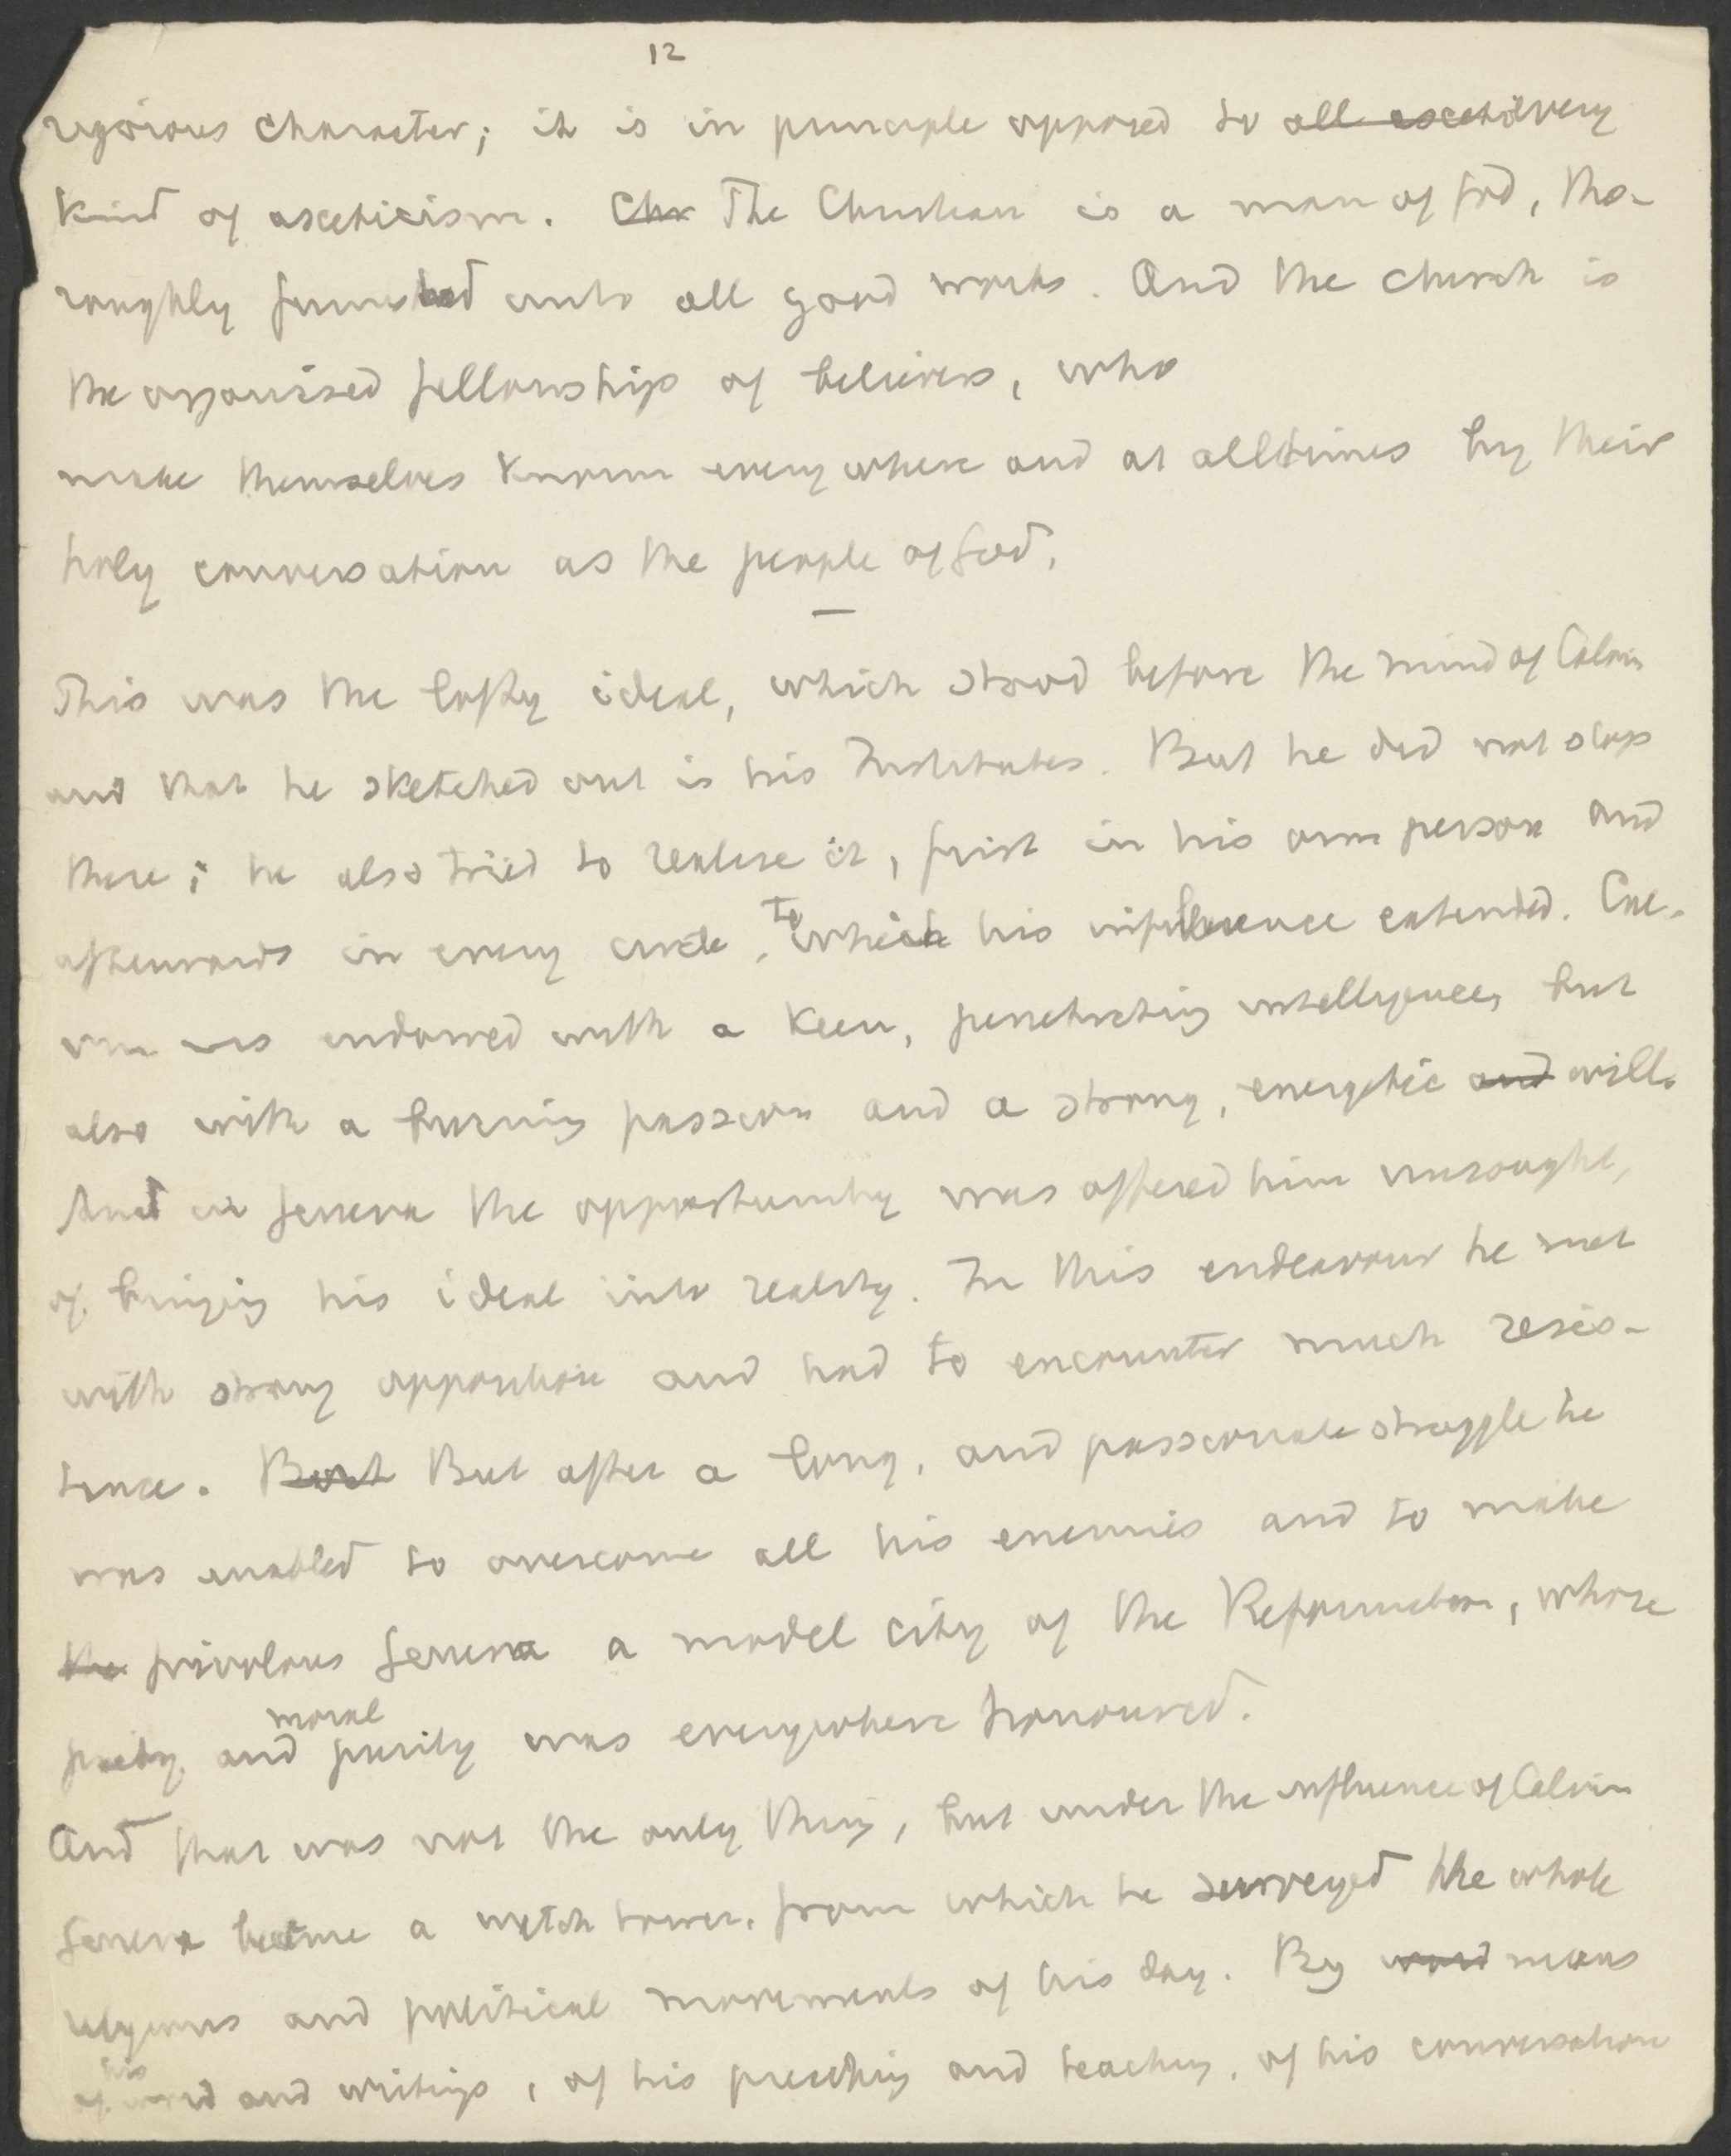 12
rigorous character; it is in principle opposed to all asceti every
kind of asceticism. Chr The Christian is a man of God, tho-
roughly furnished unto all good works. And the church is
the organised fellowship of believers, who
make themselves known everywhere and at all times by their
holy conversation as the people of God.
—
This was the lofty ideal, which stood before the mind of Calvin
and that he sketched out in his Institutes. But he did not stop
there; he also tried to realise it, first in his own person and
afterwards in every circle, to which his influence extended. Cal-
vin was endowed with a keen, penetrating intelligence, but
also with a burning passion and a strong, energetic and will.
And in Geneva the opportunity was offered him unsought,
of bringing his ideal into reality. In this endeavour he met
with strong opposition and had to encounter much resis-
tance. But But after a long, and passionate struggle he
was enabled to overcome all his enemies and to make
the frivolous Geneva a model city of the Reformation, whose
piety and moral purity was everywhere honoured.
And that was not the only thing, but under the influence of Calvin
Geneva became a watch tower, from which he surveyed the whole
religious and political movements of his day. By word means
of his word and writings, of his preaching and teaching, of his conversation